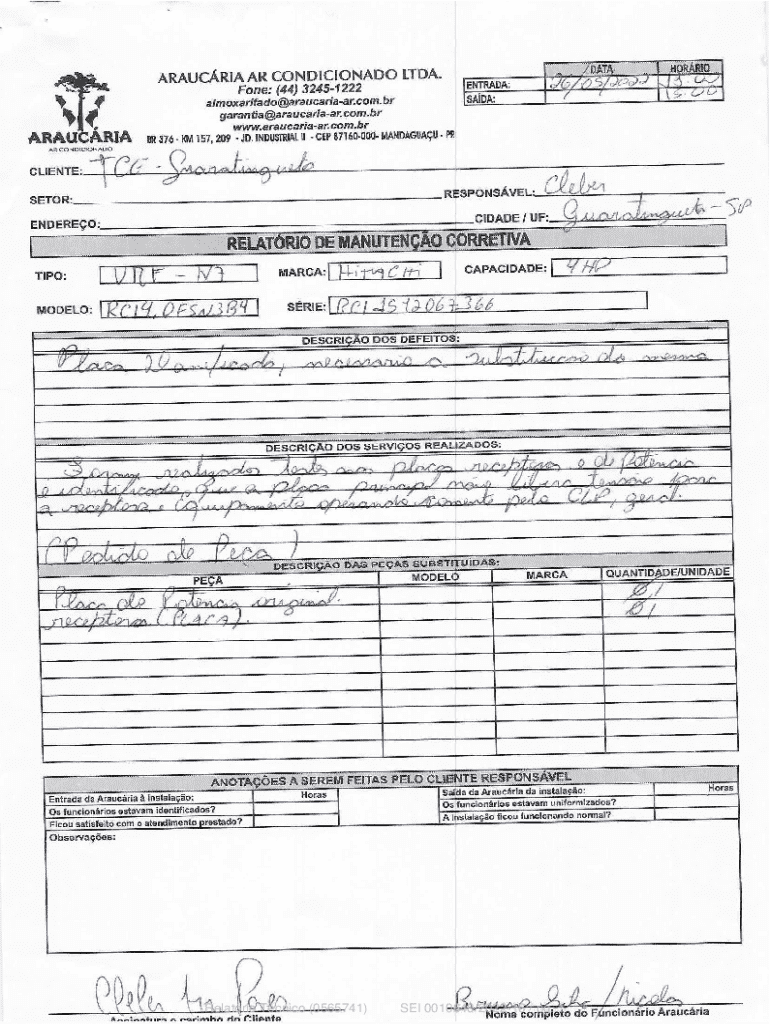 ARAUCÁRIA AR CONDICIONADO LTDA.
Fone: (44) 3245-1222
almoxarifado@araucaria-ar.com.br
garantia@araucaria-ar.com.br
www.araucaria-ar.com.br
BR 376 - KM 157, 209 - JD. INDUSTRIAL II - CEP 87160-000- MANDAGUAÇU - PR
ARAUCÁRIA
AR CONDICIONADO
DATA HORÁRIO
ENTRADA: 26/05/2022
SAÍDA: 15:00
CLIENTE: TCE - Guaratingueta
SETOR: RESPONSÁVEL: Cleber
ENDEREÇO: CIDADE / UF: Guaratingueta - SP
RELATÓRIO DE MANUTENÇÃO CORRETIVA
TIPO: VRF - N7 MARCA: HITACHI CAPACIDADE: 4HP
MODELO: RCI4,0FSN3B4 SÉRIE:
DESCRIÇÃO DOS DEFEITOS:
Placa Danificada, necessario a substituicao da mesma
DESCRIÇÃO DOS SERVIÇOS REALIZADOS:
Foram realizados testes nas placas receptoras e de Potencia
e identificado, que a placa principal não libera tensão para
a receptora e Equipamento operando somente pelo geral.
(Pedido de Peça)
DESCRIÇÃO DAS PEÇAS SUBSTITUIDAS:
PEÇA MODELO MARCA QUANTIDADE/UNIDADE
Placa de Potencia original. 01
receptora (PLACA). 01
ANOTAÇÕES A SEREM FEITAS PELO CLIENTE RESPONSÁVEL
Entrada da Araucária à instalação: Horas Saída da Araucária da instalação: Horas
Os funcionários estavam identificados? Os funcionários estavam uniformizados?
Ficou satisfeito com o atendimento prestado? A instalação ficou funcionando normal?
Observações:
(0565741) SEI
Assinatura e carimbo do Cliente Nome completo do Funcionário Araucária